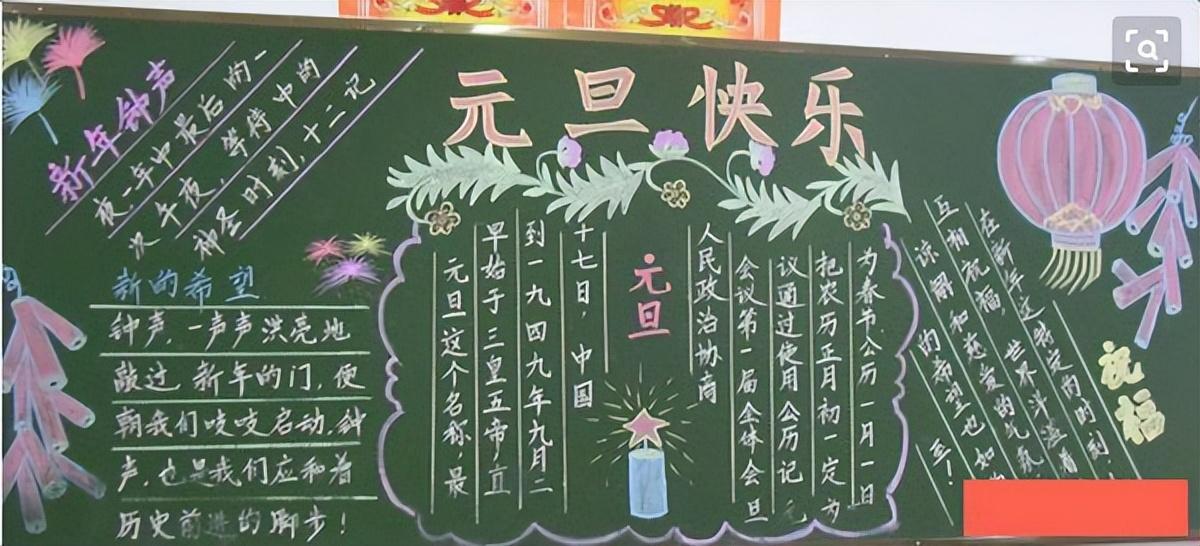 元旦快乐
新年钟声
夜，一年中最后的一
次午夜，等待中的
神圣时刻，十二记
新的希望
钟声，一声声洪亮地
敲过新年的门，便
朝我们吱吱启动，钟
声，也是我们应和着
历史前进的脚步！
元旦这个名称，最
早始于三皇五帝，直
到一九四九年九月二
十七日，中国
元旦
人民政治协商
会议第一届全体会旦
议通过使用公历记元
把农历正月初一定为
为春节，公历一月一日
祝福
在新年这特定的时刻，
互相祝福，世界洋溢着
谅解和慈爱的气氛，
的希望也如
至！